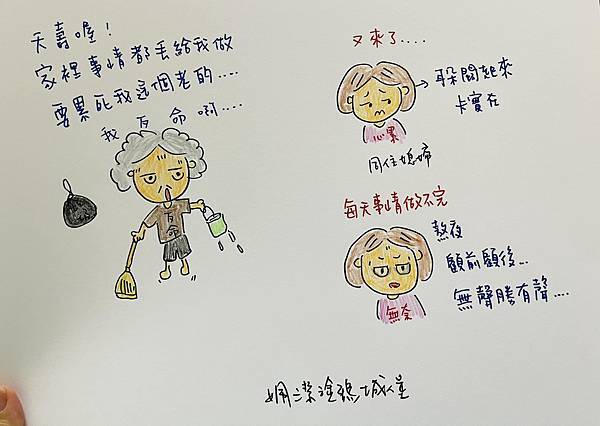 夭壽喔！
家裡事情都丟給我做
要累死我這個老的....
我ㄎ命啊....
ㄎ命
又來了....
躲開起來
卡實在
心累
同住媳婦
每天事情做不完
熬夜
顧前顧後...
無聲勝有聲....
無奈